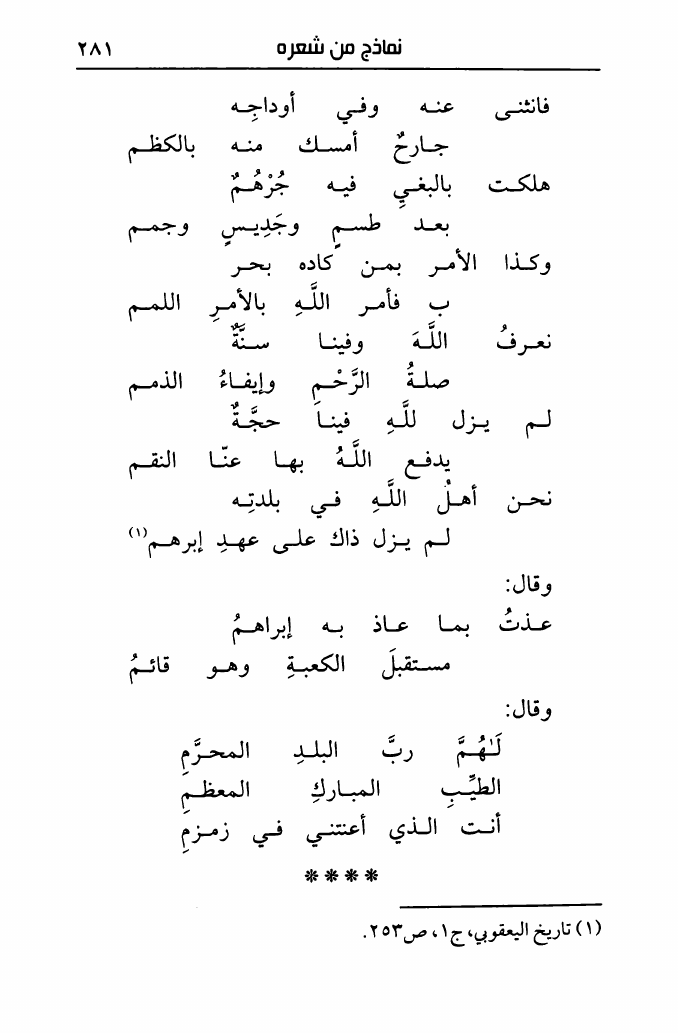 نماذج من شعره ٢٨١
فانثنى عنه وفي أوداجِه
جارحٌ أمسك منه بالكظم
هلكت بالبغيِ فيه جُرْهُمٌ
بعد طسمٍ وجَدِيسٍ وجمم
وكذا الأمر بمن كاده بحر
ب فأمر اللَّهِ بالأمرِ اللمم
نعرفُ اللَّهَ وفينا سنَّةٌ
صلةُ الرَّحْمِ وإيفاءُ الذمم
لم يزل للَّهِ فينا حجَّةٌ
يدفع اللَّهُ بها عنّا النقم
نحن أهلُ اللَّهِ في بلدتِه
لم يزل ذاك على عهدِ إبرهم(١)
وقال:
عذتُ بما عاذ به إبراهمُ
مستقبلَ الكعبةِ وهو قائمُ
وقال:
لَهُمَّ ربَّ البلدِ المحرَّمِ
الطيِّبِ المباركِ المعظمِ
أنت الذي أعنتني في زمزمِ
****
(١) تاريخ اليعقوبي، ج١، ص٢٥٣.